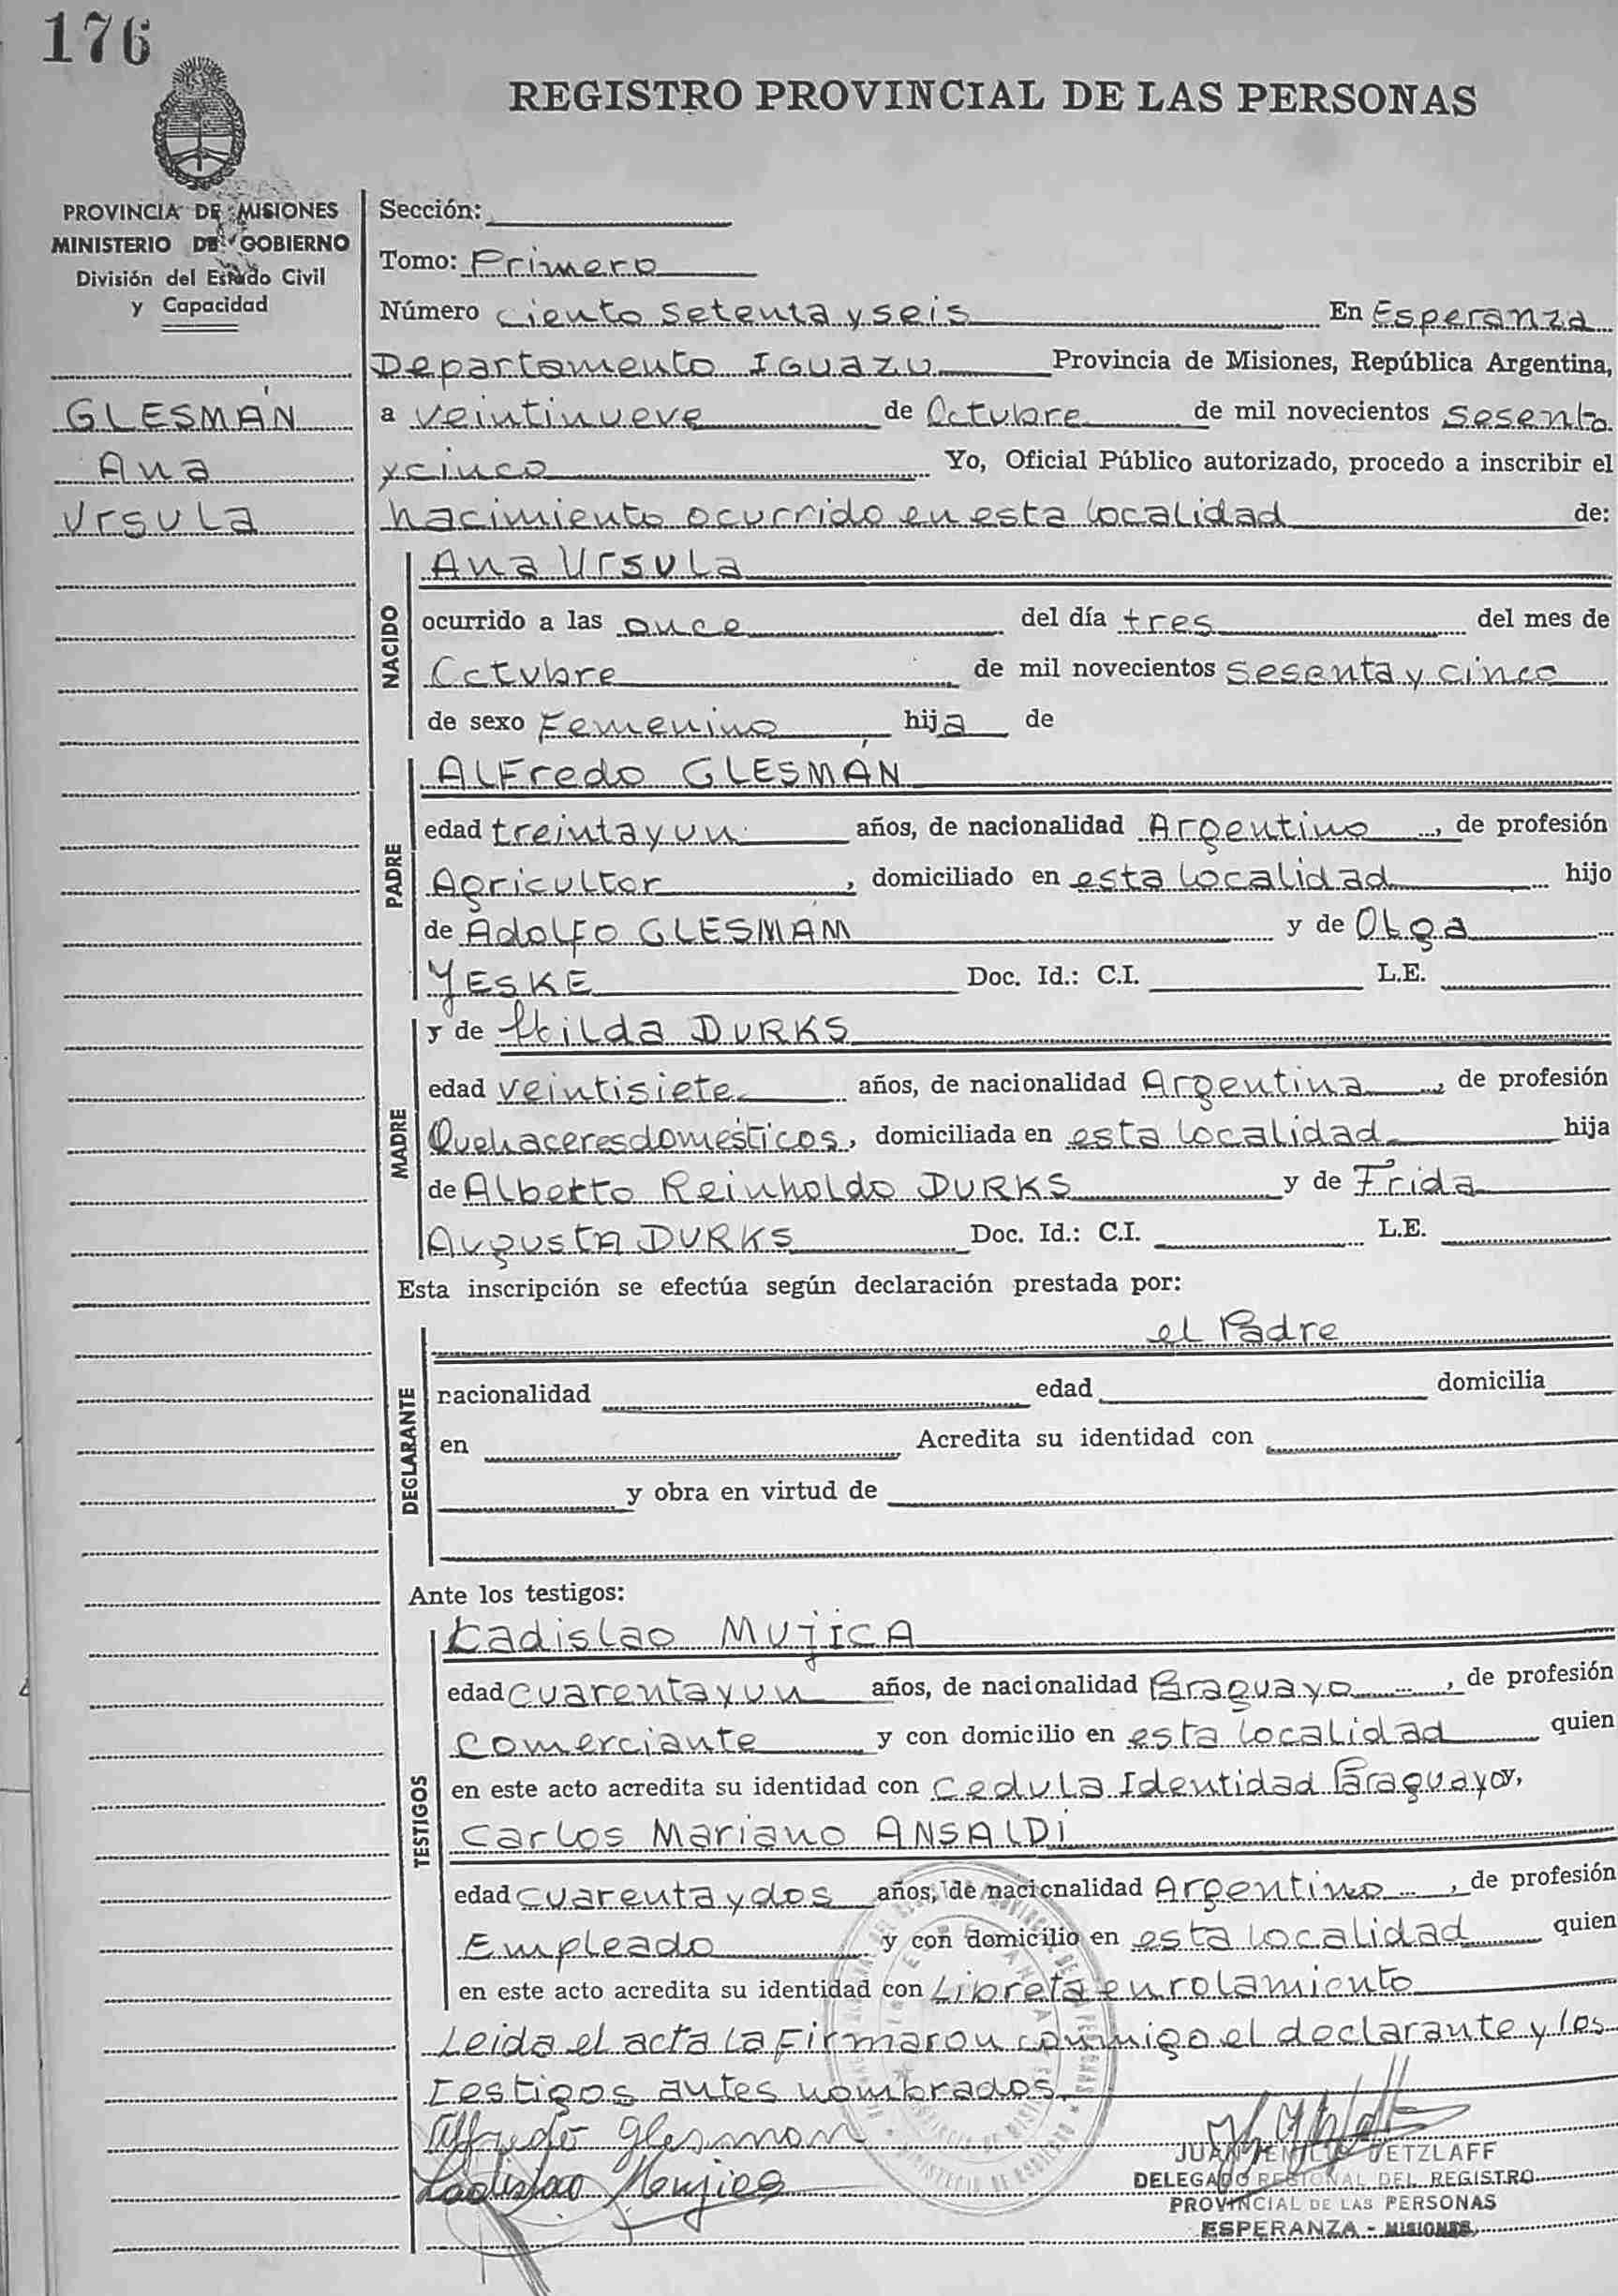 176
REGISTRO PROVINCIAL DE LAS PERSONAS
PROVINCIA DE MISIONES
MINISTERIO DE GOBIERNO
División del Estado Civil
y Capacidad
GLESMÁN
Ana
Ursula
Sección:
Tomo: Primero
Número ciento setenta y seis En Esperanza
Departamento IGUAZU Provincia de Misiones, República Argentina,
a veintinueve de Octubre de mil novecientos sesenta
y cinco Yo, Oficial Público autorizado, procedo a inscribir el
nacimiento ocurrido en esta localidad de:
NACIDO
Ana Ursula
ocurrido a las once del día tres del mes de
Octubre de mil novecientos sesenta y cinco
de sexo Femenino hija de
PADRE
ALFredo GLESMÁN
edad treinta y un años, de nacionalidad Argentino, de profesión
Agricultor, domiciliado en esta localidad hijo
de Adolfo GLESMAM y de Olga
YESKE Doc. Id.: C.I. L.E.
MADRE
y de Hilda DURKS
edad veintisiete años, de nacionalidad Argentina, de profesión
Quehaceres domésticos, domiciliada en esta localidad hija
de Alberto Reinholdo DURKS y de Frida
Augusta DURKS Doc. Id.: C.I. L.E.
Esta inscripción se efectúa según declaración prestada por:
DECLARANTE
el Padre
nacionalidad edad domicilia
en Acredita su identidad con
y obra en virtud de
Ante los testigos:
TESTIGOS
Ladislao MUjICA
edad cuarenta y un años, de nacionalidad Paraguayo, de profesión
Comerciante y con domicilio en esta localidad quien
en este acto acredita su identidad con cedula Identidad Paraguayo y,
Carlos Mariano ANSALDI
edad cuarenta y dos años, de nacionalidad Argentino, de profesión
Empleado y con domicilio en esta localidad quien
en este acto acredita su identidad con Libreta enrolamiento
Leida el acta la Firmaron conmigo el declarante y los
testigos antes nombrados.
Alfredo Glesman
Ladislao Mujica
JUAN RETZLAFF
DELEGADO REGIONAL DEL REGISTRO
PROVINCIAL DE LAS PERSONAS
ESPERANZA - MISIONES